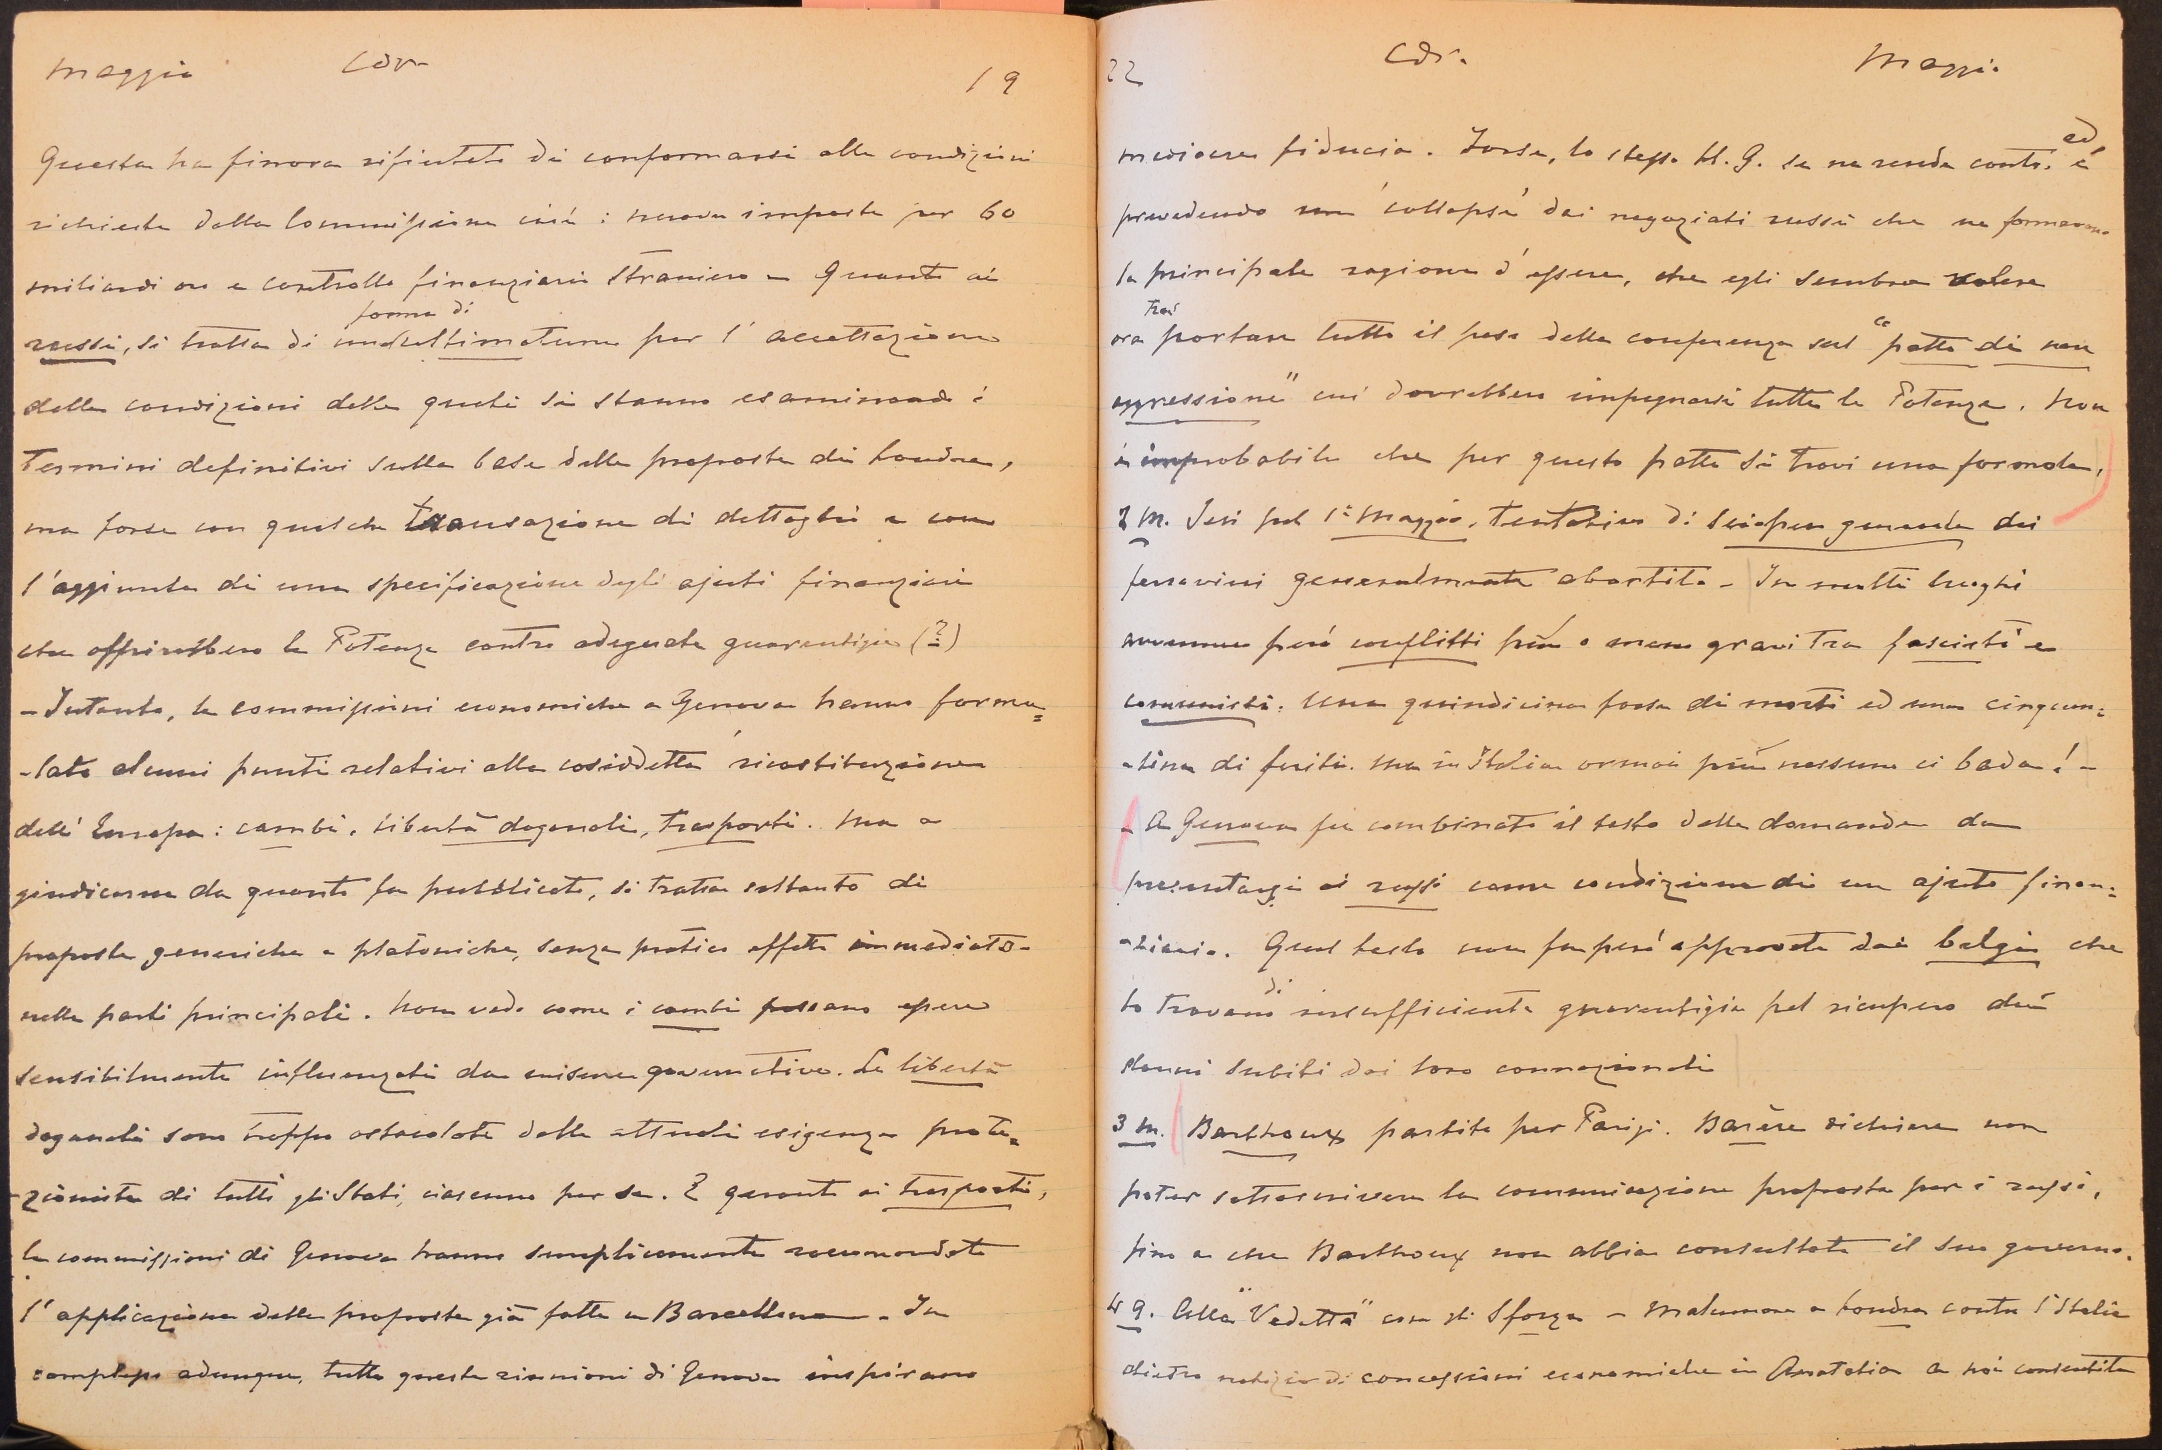 maggio Cdr 19
Questa ha finora rifiutato di conformarsi alle condizioni
richieste dalla Commissione cioè: nuove imposte per 60
miliardi oro e controllo finanziario straniero – Quanto ai
forma di
russi, si tratta di un ultimatum per l'accettazione
delle condizioni delle quali si stanno esaminando i
termini definitivi sulla base delle proposte di Londra,
ma forse con qualche transazione di dettaglio e con
l'aggiunta di una specificazione degli ajuti finanziari
che offrirebbero le Potenze contro adeguate guarentigie (?)
– Intanto, le commissioni economiche a Genova hanno formu=
-lato alcuni punti relativi alla cosiddetta ricostituzione
dell'Europa: cambi, libertà doganali, trasporti. Ma a
giudicarne da quanto fu pubblicato, si tratta soltanto di
proposte generiche e platoniche, senza pratico effetto immediato
nelle parti principali. Non vedo come i cambi possano essere
sensibilmente influenzati da misure governative. Le libertà
doganali sono troppo ostacolate dalle attuali esigenze prote=
-zioniste di tutti gli Stati, ciascuno per se. E quanto ai trasporti,
le commissioni di Genova hanno semplicemente raccomandato
l'applicazione delle proposte già fatte a Barcellona – In
complesso adunque, tutte queste riunioni di Genova inspirano
22 Cdr. Maggio
ed
mediocre fiducia. Forse, lo stesso Ll. G. se ne rende conto. è
prevedendo un 'collapse' dei negoziati russi che ne formavano
la principale ragione d'essere, che egli sembra volere
ora portare tutto il peso della conferenza sul "patto di non
aggressione" cui dovrebbero impegnarsi tutte le Potenze. Non
è improbabile che per questo patto si trovi una formola,
2 M. Ieri pel 1º Maggio, tentativo di sciopero generale dei
ferrovieri generalmente abortito – In molti luoghi
avvennero però conflitti più o meno gravi tra fascisti e
comunisti. Una quindicina forse di morti ed una cinquan=
-tina di feriti. Ma in Italia ormai più nessuno ci bada! –
– A Genova fu combinato il testo delle domande da
presentarsi ai russi come condizione di un ajuto finan=
-ziario. Quel testo non fu però approvato dai belgi che
di
lo trovano insufficiente guarentigia pel ricupero dei
danni subiti dai loro connazionali
3 M. Barthoux partito per Parigi. Barère dichiara non
poter sottoscrivere la comunicazione proposta per i russi,
fino a che Barthoux non abbia consultato il suo governo.
4 G. Alla "Vedetta" con gli Sforza – Malumore a Londra contro l'Italia
dietro notizie di concessioni economiche in Anatolia a noi consentite